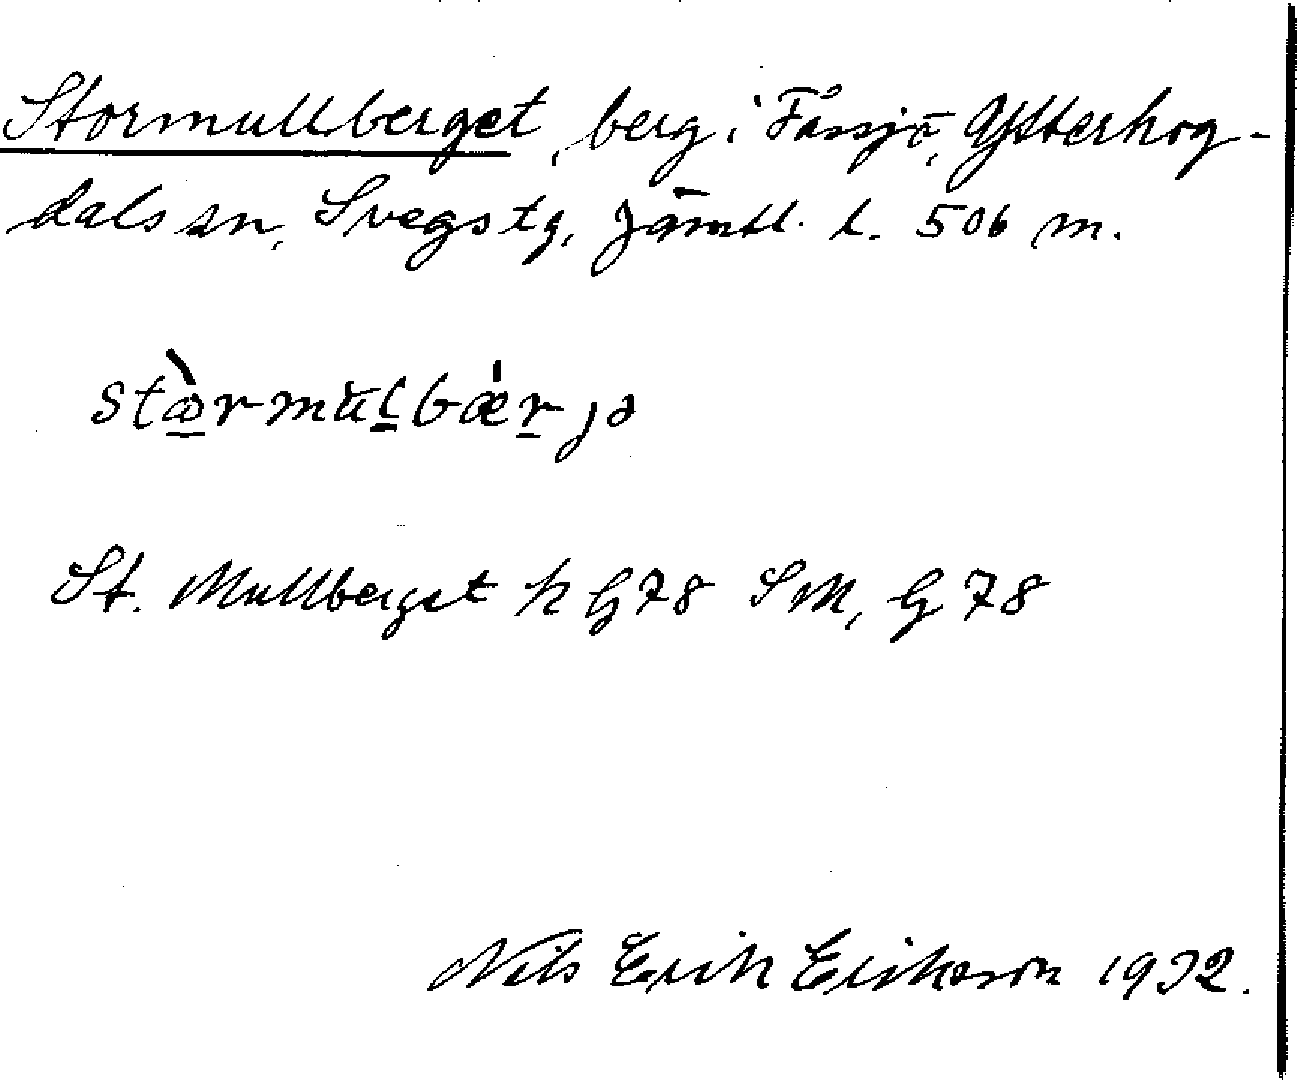 Stormullberget, berg i Fåssjö, Ytterhog-
dals sn, Svegs tg, Jämtl. l. 506 m.
stæ̀rmŭlbæ̍rjə
St. Mullberget k G 78 SM, G 78
Nils Erik Eriksson 1932.